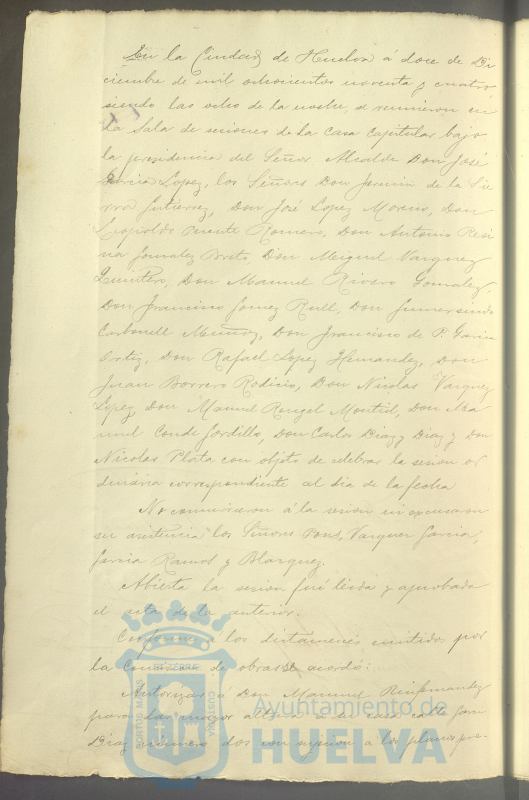 En la Ciudad de Huelva á doce de Di
ciembre de mil ochocientos noventa y cuatro
siendo las ocho de la noche, se reunieron en
la Sala de sesiones de la casa capitular bajo
la presidencia del Señor Alcalde Don José
Garcia Lopez, los Señores Don de la Sie
rra Gutierrez, Don José Lopez Moreno, Don
Leopoldo Puente Romero, Don Antonio Resi
na Gonzalez Don Miguel Vazquez
Quintero, Don Manuel Rivero Gonzalez,
Don Francisco Gomez Rull, Don Gumersindo
Carbonell Muñoz, Don Francisco de P. Garcia
Ortiz, Don Rafael Lopez Hernandez, Don
Juan Borrero Rodicio, Don Nicolas Vazquez
Lopez, Don Manuel Rengel Montiel, Don Ma
nuel Conde Gordillo, Don Carlos Diaz y Diaz y Don
Nicolas Plata con objeto de celebrar la sesion or
dinaria correspondiente al dia de la fecha
No concurrieron á la sesion ni excusaron
su asistencia los Señores Pons, Vazquez Garcia,
Garcia Ramos y Blazquez.
Abierta la sesion fué leida y aprobada
el acta de la anterior.
Conforme á los dictamenes emitidos por
la Comision de obras se acordó:
Autorizar á Don Manuel
para dar mayor altura á su casa calle
Diaz número dos con sujecion á los planos pre-
PORTUS MARIS ET TERRÆ CUSTODIA
Ayuntamiento de
HUELVA